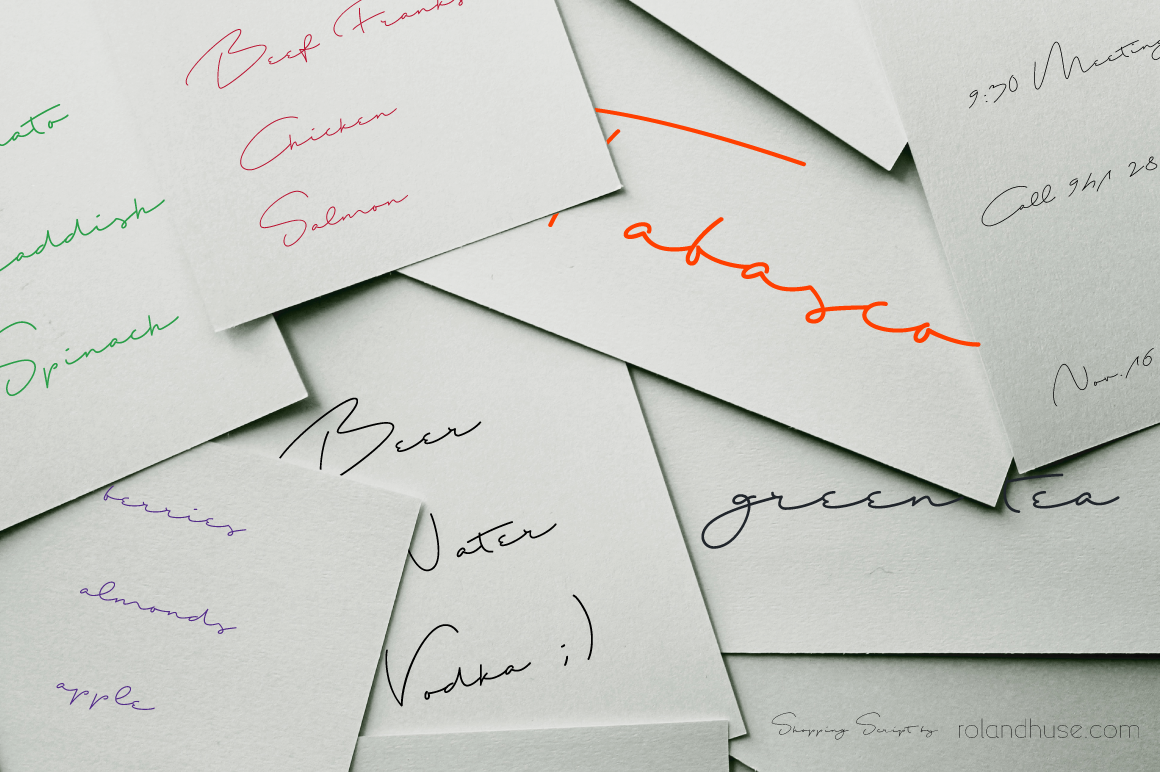 Beef Franks
Chicken
Salmon
ato
addish
Spinach
abasco
9:30 Meeting
Call 941 28
Nov. 16
Beer
Water
Vodka ;)
green tea
berries
almonds
apple
Shopping Script by rolandhuse.com